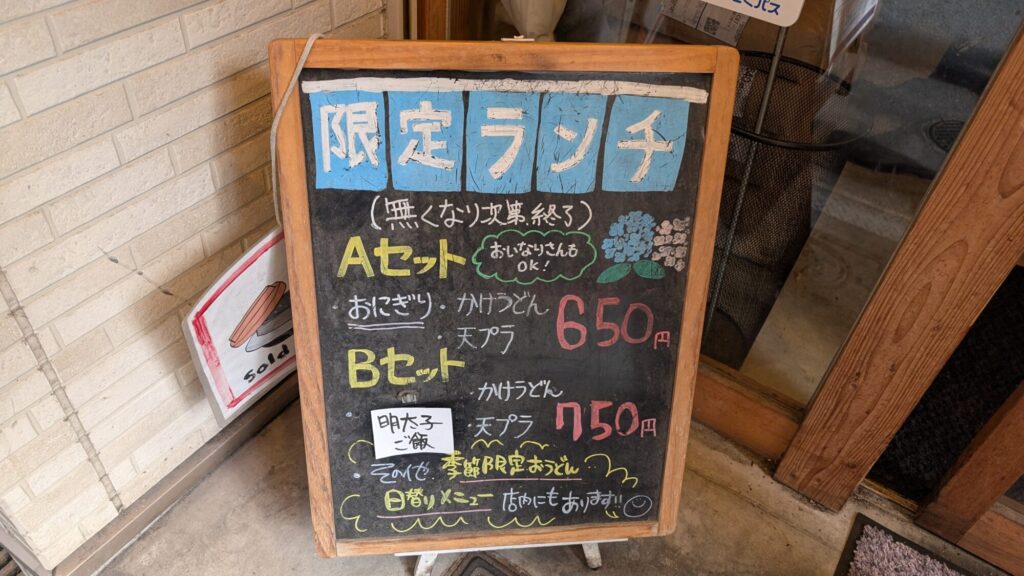 くパス
限定ランチ
(無くなり次第終了)
Aセット
おいなりさんも
OK!
・おにぎり・かけうどん
・天プラ
650円
Bセット
・かけうどん
・明太子
ご飯
・天プラ
750円
・その他 季節限定おうどん
日替りメニュー 店内にもあります!!
sold